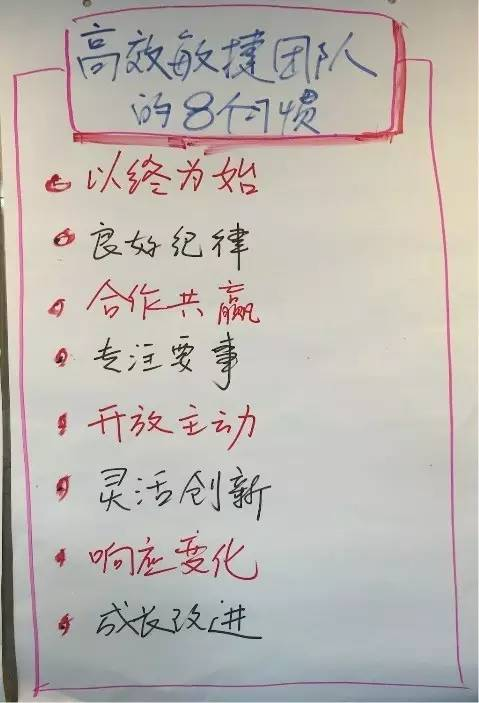 高效敏捷团队
的8个习惯
以终为始
良好纪律
合作共赢
专注要事
开放主动
灵活创新
响应变化
成长改进